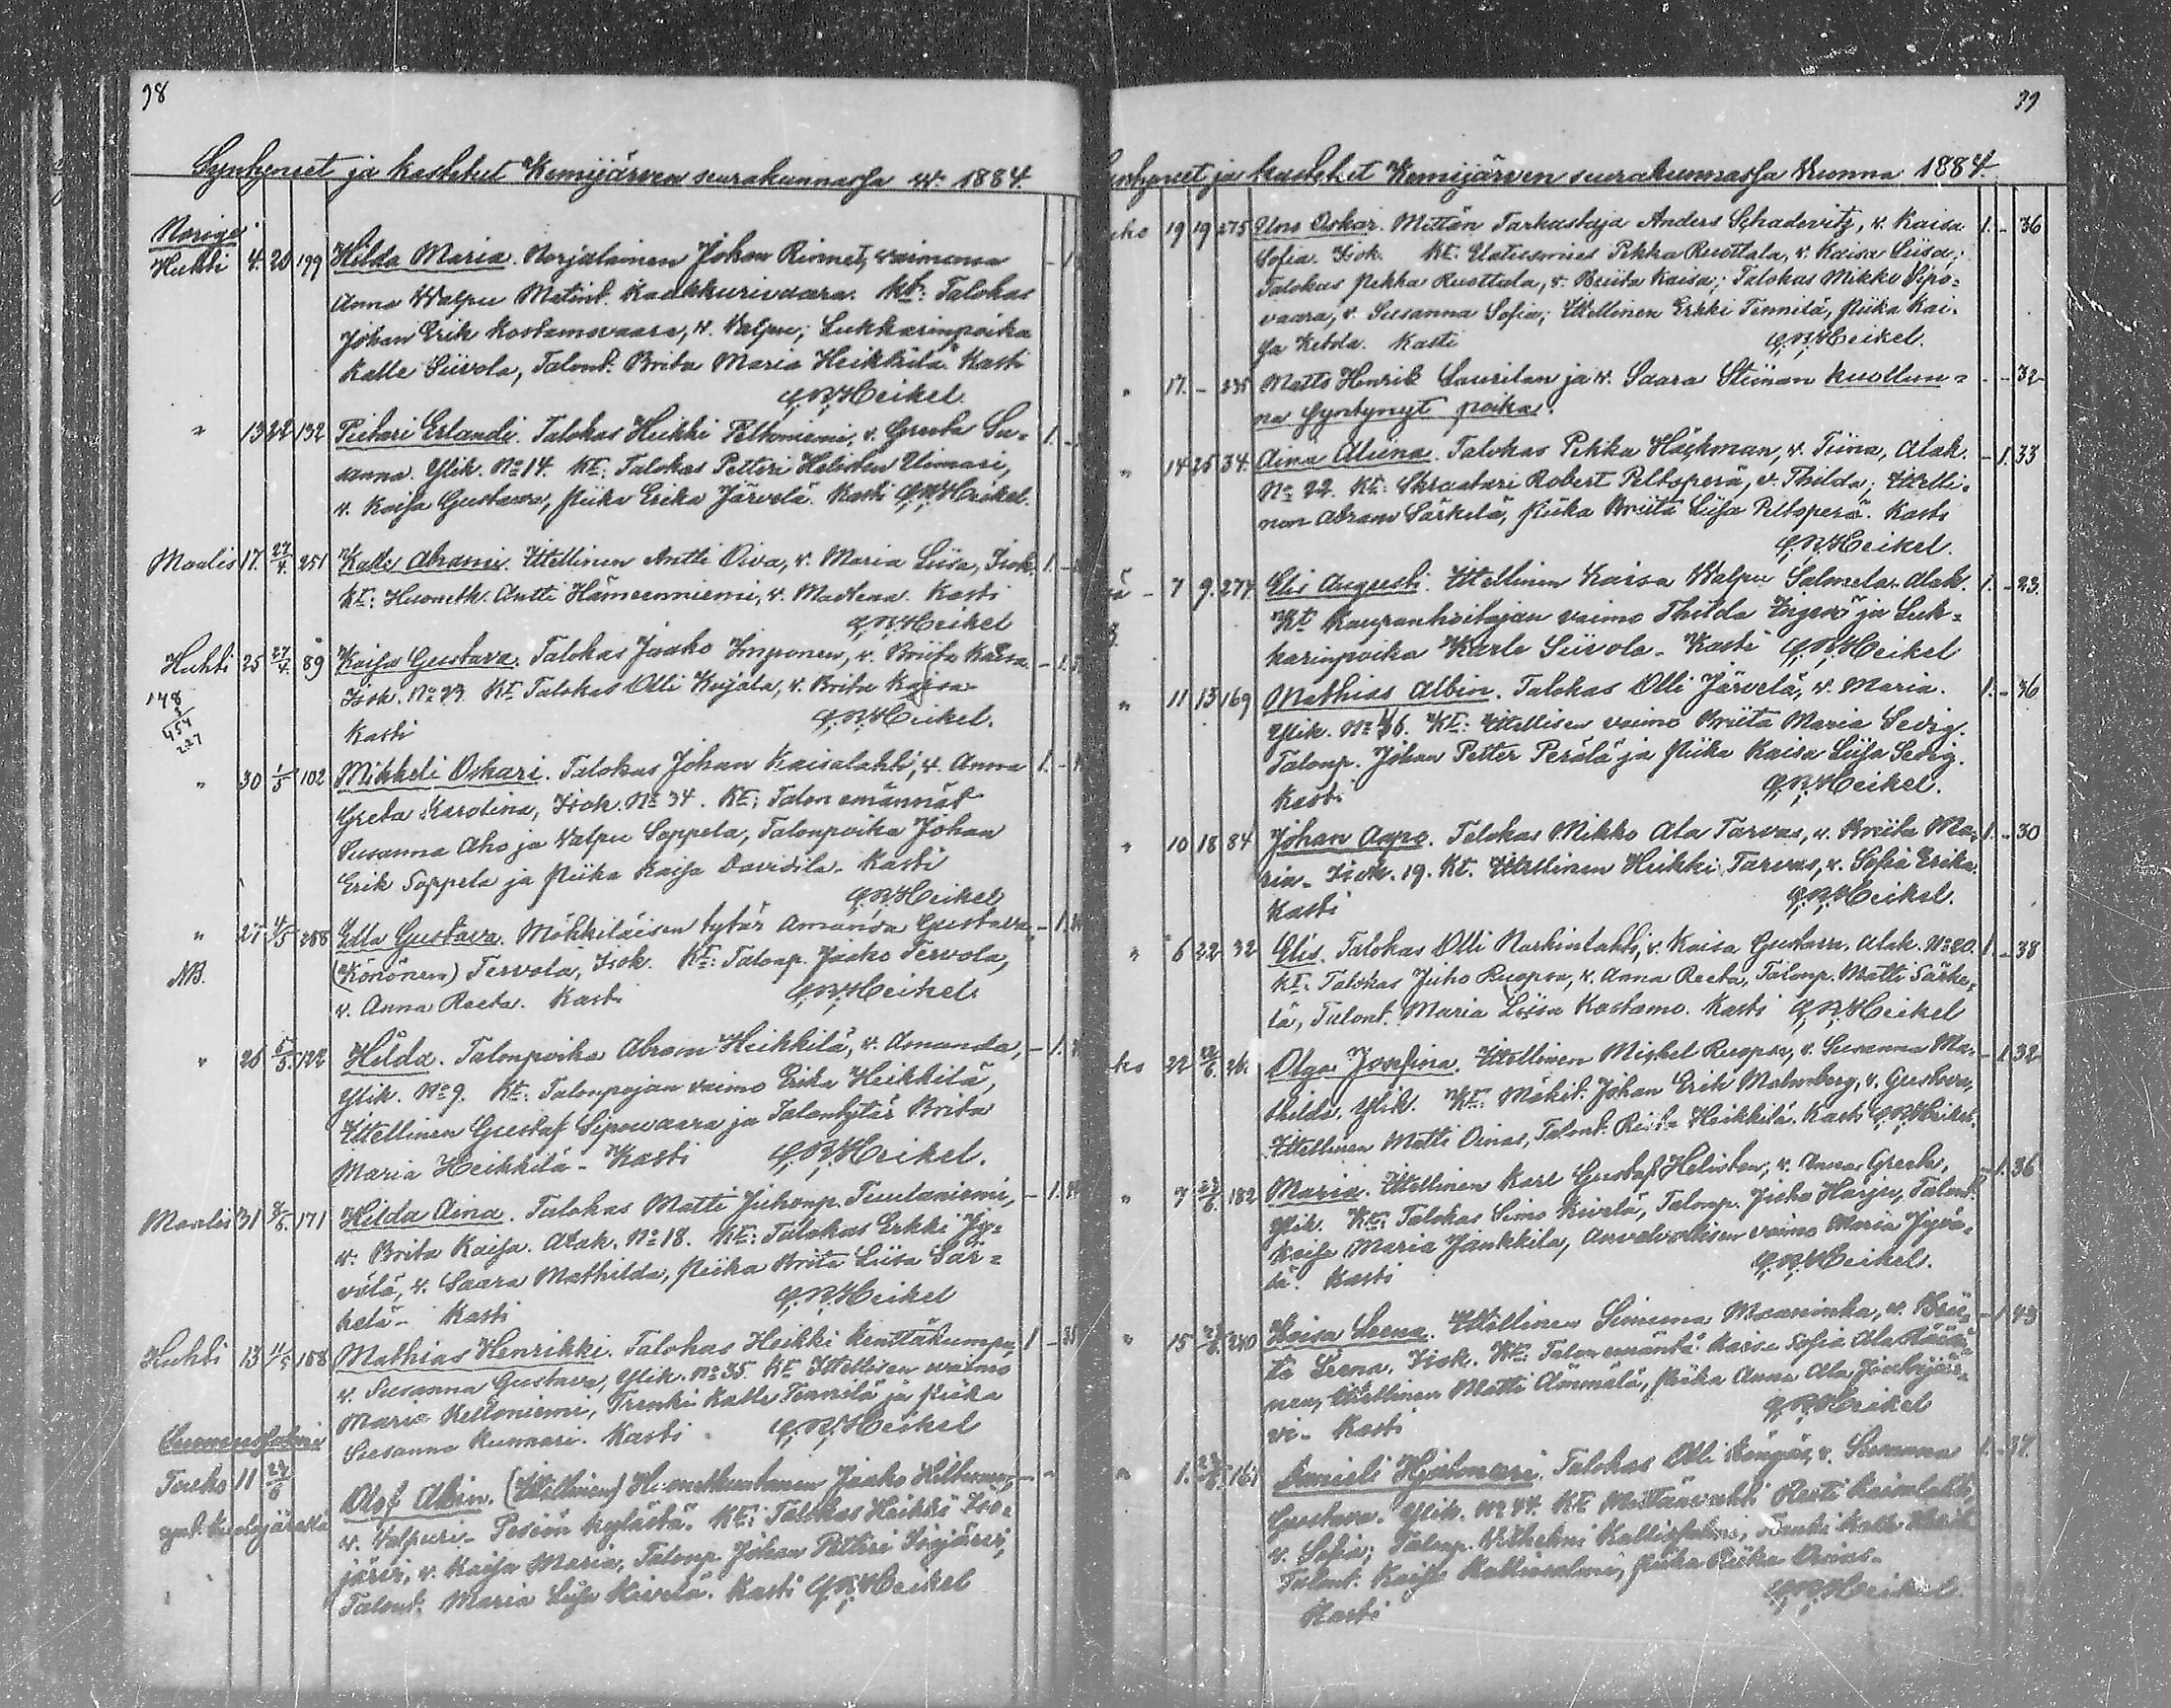 38
Syntyneet ja kastetut Kemijärven seurakunnassa w. 1884.
Norige
Huhti 4. 20 199 Hilda Maria. Norjalainen Johan Rinnet, vaimonsa
Anna Walpu Matint. Kaakkurivaara. Kt: Talokas
Johan Erik Kostamovaara, v. Valpu; Lukkarinpoika
Kalle Siivola, Talont. Brita Maria Heikkilä. Kasti
Heikel.
" 13 22 132 Pietari Erlandi. Talokas Heikki Peltoniemi, v. Greeta Su-
sanna. Ylik. No 14. Kt: Talokas Petteri Helisten
v. Kaisa Gustava, Piika Erika Järvelä. Kasti Heikel.
Maalis 17. 27/4. 251 Kalle Abrami. Ittellinen Antti Oiva, v. Maria Liisa, Isok. 1. -
Kt: Huoneth. Antti Hämeenniemi, v. Madlena. Kasti
Heikel
Huhti 25 27/4. 89 Kaisa Gustava. Talokas Jaako Imponen, v. Briita Kaisa. - 1.
148 Isok. No 23. Kt Talokas Olli Kujala, v. Brita Kaisa
Kasti Heikel.
" 30 1/5 102 Mikkeli Oskari. Talokas Johan Kaisalahti, v. Anna 1. -
Greta Karolina, Isok. No 34. Kt: Talon emännät
Susanna Aho ja Valpu Soppela, Talonpoika Johan
Erik Soppela ja Piika Kaisa Davidila. Kasti
Heikel
" 27 4/5 258 Edla Gustava. Mökkiläisen tytär Amanda Gustava - 1.
NB. (Könönen) Tervola, Isok. Kt: Talonp. Jaako Tervola,
v. Anna Reeta. Kasti Heikel.
" 26 5/5. 122 Hilda. Talonpoika Abram Heikkilä, v. Amanda, - 1.
Ylik. No 9. Kt: Talonpojan vaimo Erika Heikkilä,
Ittellinen Gustaf Sipovaara ja Talontytär Brita
Maria Heikkilä - Kasti Heikel.
Maalis 31 8/5. 171 Hilda Aina. Talokas Matti Juhonp. Tuulaniemi, - 1.
v. Brita Kaisa. Alak. No 18. Kt: Talokas Erkki Jy-
välä, v. Saara Mathilda, Piika Brita Liisa Sär-
kelä - Kasti Heikel
Huhti 13 11/5 158 Mathias Henrikki. Talokas Heikki Kenttäkumpu, 1 - 35
v. Susanna Gustava, Ylik. No 35. Kt Ittellisen vaimo
Maria Kelloniemi, Trenki Kalle Tennilä ja Piika
Susanna Kunnari. Kasti Heikel
Touko 11 Olof Albin. (Ittellinen) Jaako
synt. Kuolajärvellä v. Valpuri - Posion kylästä. Kt: Talokas Heikki Iso-
järvi, v. Kaisa Maria, Talonp. Johan Petteri Isojärvi,
Talont. Maria Liisa Kivelä. Kasti Heikel
39
Syntyneet ja kastetut Kemijärven seurakunnassa Vuonna 1884.
19 19 275 Uno Oskar. Mittän Tarkastaja Anders Schadevitz, v. Kaisa 1. - 36
Sofia. Isok. Kt: Pekka Ruottala, v. Kaisa Liisa;
Talokas Pekka Ruottala, v. Briita Kaisa; Talokas Mikko Sipo-
vaara, v. Susanna Sofia; Ittellinen Erkki Tennilä, Piika Kai-
sa Ketola. Kasti Heikel.
" 17. - 235 Matts Henrik Laurilan ja v. Saara Stiinan kuollun- - - 32
na syntynyt poika.
" 14 25 34 Aina Aliina. Talokas Pekka Hackman, v. Tiina, Alak. - 1. 33
No 22. Kt: Skraatari Robert Peltoperä, v. Thilda; Ittelli-
nen Abram Särkelä, Piika Briita Liisa Peltoperä. Kasti
Heikel.
7 9. 274 Elis Augusti. Ittellinen Kaisa Walpu Salmela. Alak. 1. - 23.
Kt Kaupanhoitajan vaimo Thilda ja Luk-
karinpoika Kaarle Siivola - Kasti Heikel
" 11 13 169 Mathias Albin. Talokas Olli Järvelä, v. Maria. 1. - 36
Ylik. Kt: Ittellisen vaimo Briita Maria Sedig.
Talonp. Johan Petter Perälä ja Piika Kaisa Liisa Sedig.
Kasti Heikel.
" 10 18 84 Johan Arpo. Talokas Mikko Ala Tarvas, v. Briita Ma- 1. - 30
ria - Isok. 19. Kt. Ittellinen Heikki Tarvas, v. Sofia Erika.
Kasti Heikel.
" 6 22 32 Elis. Talokas Olli Narkinlahti, v. Kaisa Gustava. Alak. No 20. 1. - 38
Kt. Talokas Juho Ruopsa, v. Anna Reeta, Talonp. Matti Särke-
lä, Talont. Maria Liisa Kostamo. Kasti Heikel
22 26. Olga Josefina. Ittellinen Mickel Ruopsa, v. Susanna Ma- - 1. 32
thilda. Ylik. Kt: Mäkit. Johan Erik Malmberg, v. Gustava,
Ittellinen Matti Oinas, Talont. Heikkilä. Kasti Heikel.
" 7 182 Maria. Ittellinen Karl Gustaf Helisten, v. Anna Greeta, - 1. 36
Ylik. Kt: Talokas Simo Kivelä, Talonp. Juho Harju, Talont.
Kaisa Maria Jankkila, vaimo Maria
Kasti Heikel.
" 15 240 Kaisa Leena. Ittellinen Simuna Maaninka, v. Brii- - 1. 43
ta Leena. Isok. Kt: Talon emäntä Kaisa Sofia Ala
nen, Ittellinen Matti Ämmälä, Piika Anna Ala
vi - Kasti Heikel
" 1. 161 Danieli Hjalmari. Talokas Olli Köngäs, v. Susanna 1. - 37.
Gustava. Ylik. No 44. Kt Metsänvahti Kaisalahti,
v. Sofia; Talonp. Vilhelmi Kalliosalmi, Trenki Kalle
Talont. Kaisa Kalliosalmi, Piika Oinas -
Kasti Heikel.